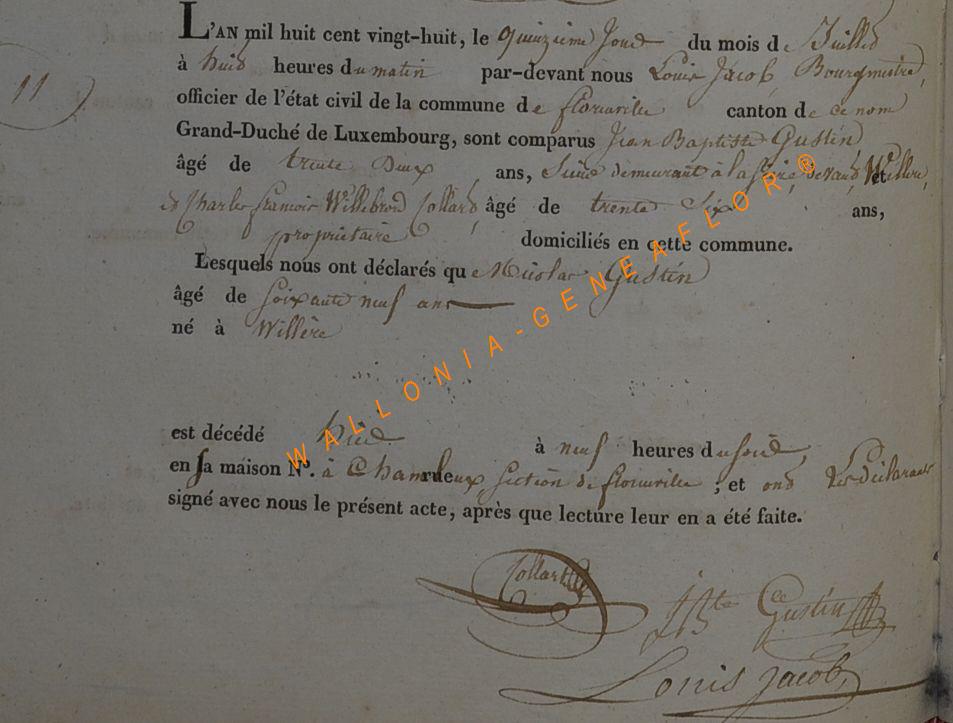 L'AN mil huit cent vingt-huit, le quinzieme Jour du mois de Juillet
à huit heures du matin par-devant nous Louis Jacob Bourgmestre,
officier de l'état civil de la commune de florenville canton de ce nom
Grand-Duché de Luxembourg, sont comparus Jean Baptiste Gustin
âgé de trente Deux ans, demeurant à la et
et Charles francois Willebrord Collard, âgé de trente Six ans,
propriétaire domiciliés en cette commune.
Lesquels nous ont déclarés que Nicolas Gustin
âgé de soixante neuf ans
né à Willère
est décédé hier à neuf heures du soir,
en sa maison N°. à Chameleux section de florenville ; et ont les déclarants
signé avec nous le présent acte, après que lecture leur en a été faite.
Collard
JBte Gustin
Louis Jacob
11
WALLONIA-GENEAFLOR®